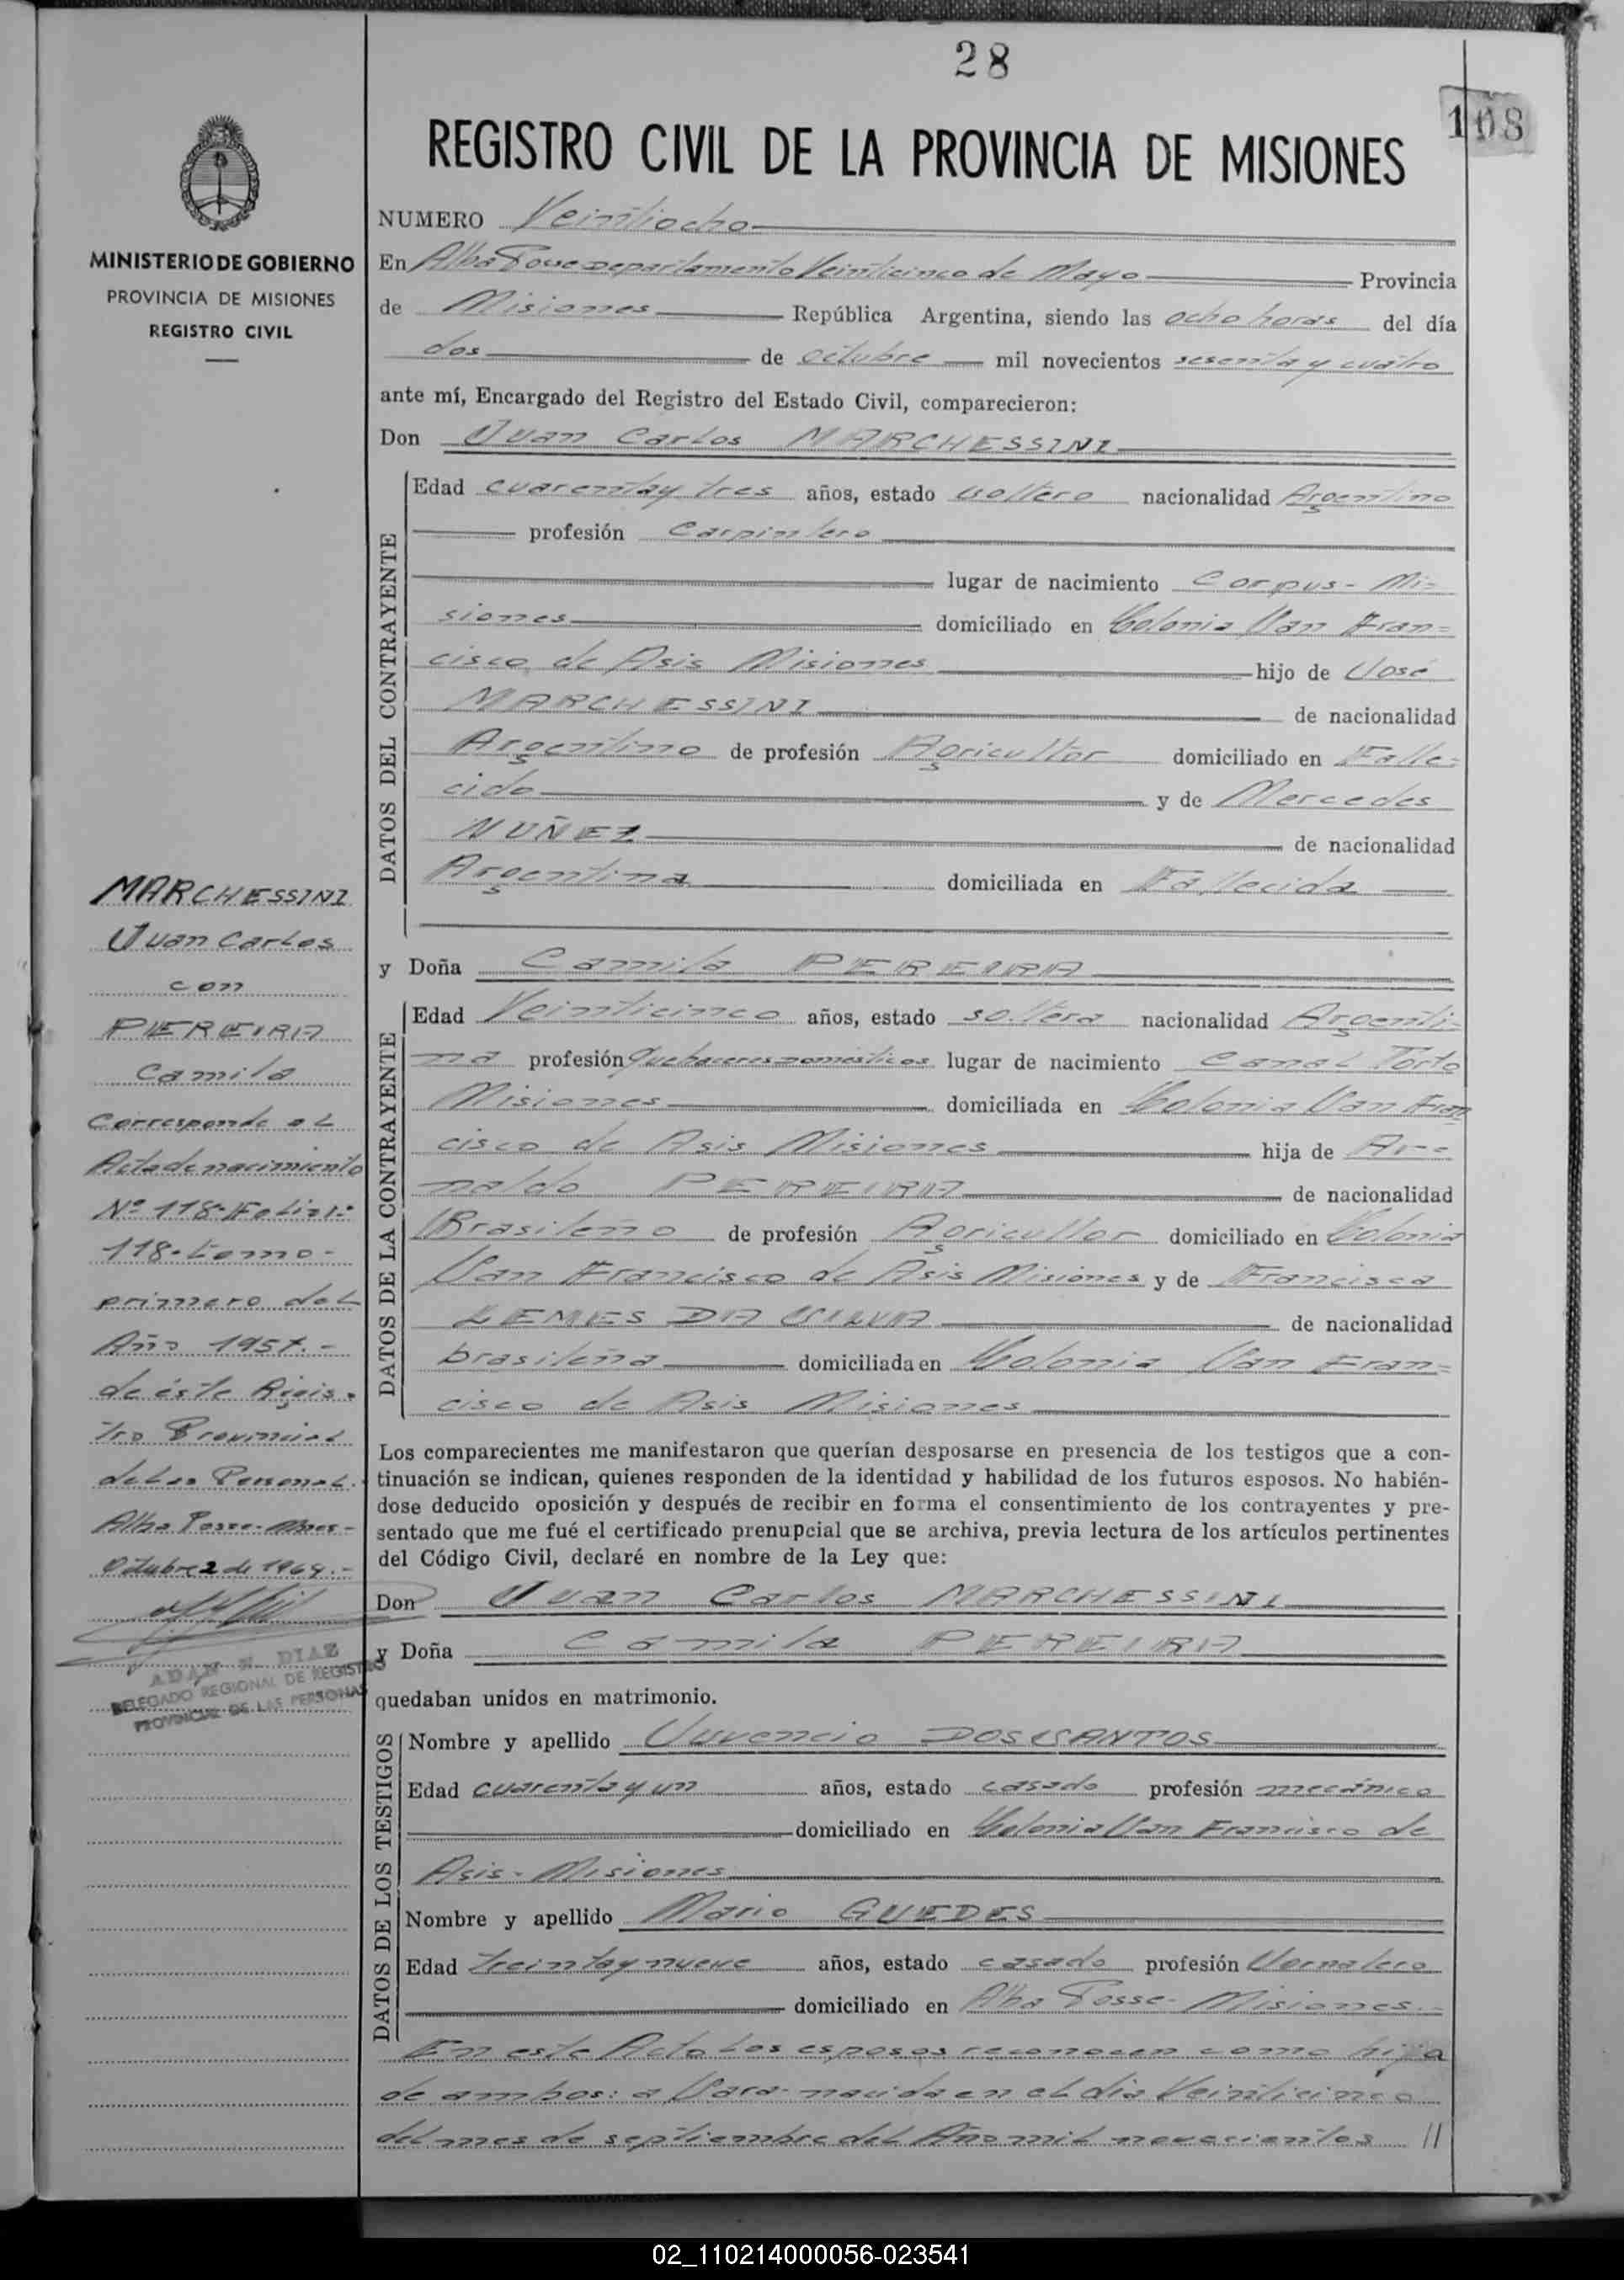 28
108
REGISTRO CIVIL DE LA PROVINCIA DE MISIONES
MINISTERIO DE GOBIERNO
PROVINCIA DE MISIONES
REGISTRO CIVIL
NUMERO Veintiocho
En Alba Posse Departamento Veinticinco de Mayo Provincia
de Misiones República Argentina, siendo las ocho horas del día
dos de octubre mil novecientos sesenta y cuatro
ante mí, Encargado del Registro del Estado Civil, comparecieron:
Don Juan Carlos MARCHESSINI
DATOS DEL CONTRAYENTE
Edad cuarentay tres años, estado soltero nacionalidad Argentino
profesión Carpintero
lugar de nacimiento Corpus - Mi=
siones domiciliado en Colonia San Fran=
cisco de Asis Misiones hijo de José
MARCHESSINI de nacionalidad
Argentino de profesión Agricultor domiciliado en Falle=
cido y de Mercedes
NUÑEZ de nacionalidad
Argentina domiciliada en Fallecida
y Doña Camila PEREIRA
DATOS DE LA CONTRAYENTE
Edad Veinticinco años, estado soltera nacionalidad Argenti=
na profesión Quehaceres Domésticos lugar de nacimiento Canal Torto
Misiones domiciliada en Colonia San Fran
cisco de Asis Misiones hija de Ar=
naldo PEREIRA de nacionalidad
Brasileño de profesión Agricultor domiciliado en Colonia
San Francisco de Asis Misiones y de Francisca
LEMES DA SILVA de nacionalidad
brasileña domiciliada en Colonia San Fran=
cisco de Asis Misiones
Los comparecientes me manifestaron que querían desposarse en presencia de los testigos que a con-
tinuación se indican, quienes responden de la identidad y habilidad de los futuros esposos. No habién-
dose deducido oposición y después de recibir en forma el consentimiento de los contrayentes y pre-
sentado que me fué el certificado prenupcial que se archiva, previa lectura de los artículos pertinentes
del Código Civil, declaré en nombre de la Ley que:
Don Juan Carlos MARCHESSINI
y Doña Camila PEREIRA
quedaban unidos en matrimonio.
DATOS DE LOS TESTIGOS
Nombre y apellido Juvencio DOS SANTOS
Edad cuarenta y un años, estado casado profesión mecánico
domiciliado en Colonia San Francisco de
Asis - Misiones
Nombre y apellido Mario GUEDES
Edad treintay nueve años, estado casado profesión Jornalero
domiciliado en Alba Posse - Misiones.-
En este Acto los esposos reconocen como hija
de ambos: a Sara nacida en el dia Veinticinco
del mes de septiembre del Año mil novecientos //
MARCHESSINI
Juan Carlos
con
PEREIRA
Camila
Corresponde al
Acta de nacimiento
Nº 118- Folio:
118-tomo-
primero del
Año 1957.-
de éste Regis.
tro Provincial
de Las Personal.
Alba Posse-
Octubre 2 de 1964.-
ADAN N. DIAZ
DELEGADO REGIONAL DE REGISTRO
PROVINCIAL DE LAS PERSONAS
02_110214000056-023541